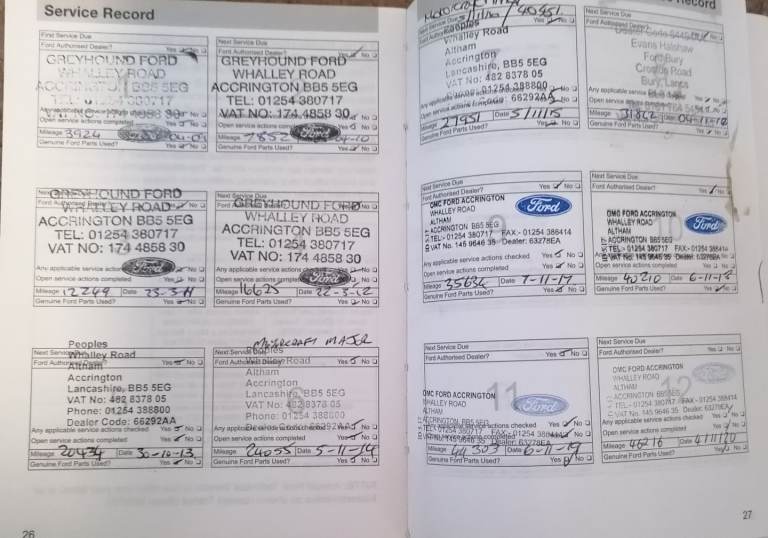 Service Record
First Service Due
Ford Authorised Dealer? Yes No
GREYHOUND FORD
WHALLEY ROAD
ACCRINGTON BB5 5EG
Open service actions completed Yes No
Mileage 3924
Genuine Ford Parts Used? Yes No
Next Service Due
Ford Authorised Dealer? Yes No
GREYHOUND FORD
WHALLEY ROAD
ACCRINGTON BB5 5EG
TEL: 01254 380717
VAT NO: 174 4858 30
Open service actions completed Yes No
Mileage 7852 Ford
Genuine Ford Parts Used? Yes No
GREYHOUND FORD
WHALLEY ROAD
ACCRINGTON BB5 5EG
TEL: 01254 380717
VAT NO: 174 4858 30
Any applicable service actions Ford Yes No
Open service actions completed Yes No
Mileage 12249 Date 23-3-11
Genuine Ford Parts Used? Yes No
Next Service Due
GREYHOUND FORD
WHALLEY ROAD
ACCRINGTON BB5 5EG
TEL: 01254 380717
VAT NO: 174 4858 30
Any applicable service actions Yes No
Open service actions completed Ford Yes No
Mileage 16625 Date 22-3-12
Genuine Ford Parts Used? Yes No
Peoples
Whalley Road
Altham
Accrington
Lancashire, BB5 5EG
VAT No: 482 8378 05
Phone: 01254 388800
Dealer Code: 66292AA
Any applicable service actions checked Yes No
Open service actions completed Yes No
Mileage 20434 Date 30-10-13
Genuine Ford Parts Used? Yes No
MOTORCRAFT MAJOR
Peoples
Whalley Road
Altham
Accrington
Lancashire, BB5 5EG
VAT No: 482 8378 05
Phone: 01254 388800
Open service actions completed Yes No
Mileage 24055 Date 5-11-14
Genuine Ford Parts Used? Yes No
26
Peoples
Whalley Road
Altham
Accrington
Lancashire, BB5 5EG
VAT No: 482 8378 05
Phone: 01254 388800
66292AA
27951 Date 5/11/15
Genuine Ford Parts Used? Yes No
Next Service Due
Ford Authorised Dealer?
Evans Halshaw
Ford Bury
Road
Bury, Lancs
Any applicable service Yes No
Open service
Mileage 31862 Date
Genuine Ford Parts Used? Yes No
Next Service Due
Ford Authorised Dealer? Yes No
OMC FORD ACCRINGTON Ford
WHALLEY ROAD
ALTHAM
ACCRINGTON BB5 5EG
TEL - 01254 380717 FAX - 01254 386414
VAT No. 145 9646 35 Dealer: 63278EA
Any applicable service actions checked Yes No
Open service actions completed Yes No
Mileage 35634 Date 7-11-17
Genuine Ford Parts Used? Yes No
Next Service Due
Ford Authorised Dealer? Yes No
OMC FORD ACCRINGTON Ford
WHALLEY ROAD
ALTHAM
ACCRINGTON BB5 5EG
TEL - 01254 380717 FAX - 01254 386414
VAT No. 145 9646 35
Open service actions completed
Mileage 40210 Date 6-11-18
Genuine Ford Parts Used? Yes No
Next Service Due
Ford Authorised Dealer? Yes No
11
OMC FORD ACCRINGTON Ford
WHALLEY ROAD
ALTHAM
ACCRINGTON BB5 5EG
Mileage 44303 Date 6-11-19
Genuine Ford Parts Used? Yes No
Next Service Due
Ford Authorised Dealer? Yes No
12
OMC FORD ACCRINGTON Ford
WHALLEY ROAD
ALTHAM
ACCRINGTON BB5 5EG
TEL - 01254 380717 FAX - 01254 386414
VAT No. 145 9646 35 Dealer: 63278EA
Any applicable service actions checked Yes No
Open service actions completed Yes No
Mileage 46216 Date 4/11/20
Genuine Ford Parts Used? Yes No
27